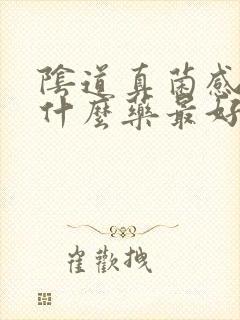 陰道真菌感
什麼藥最好
崔歡拽